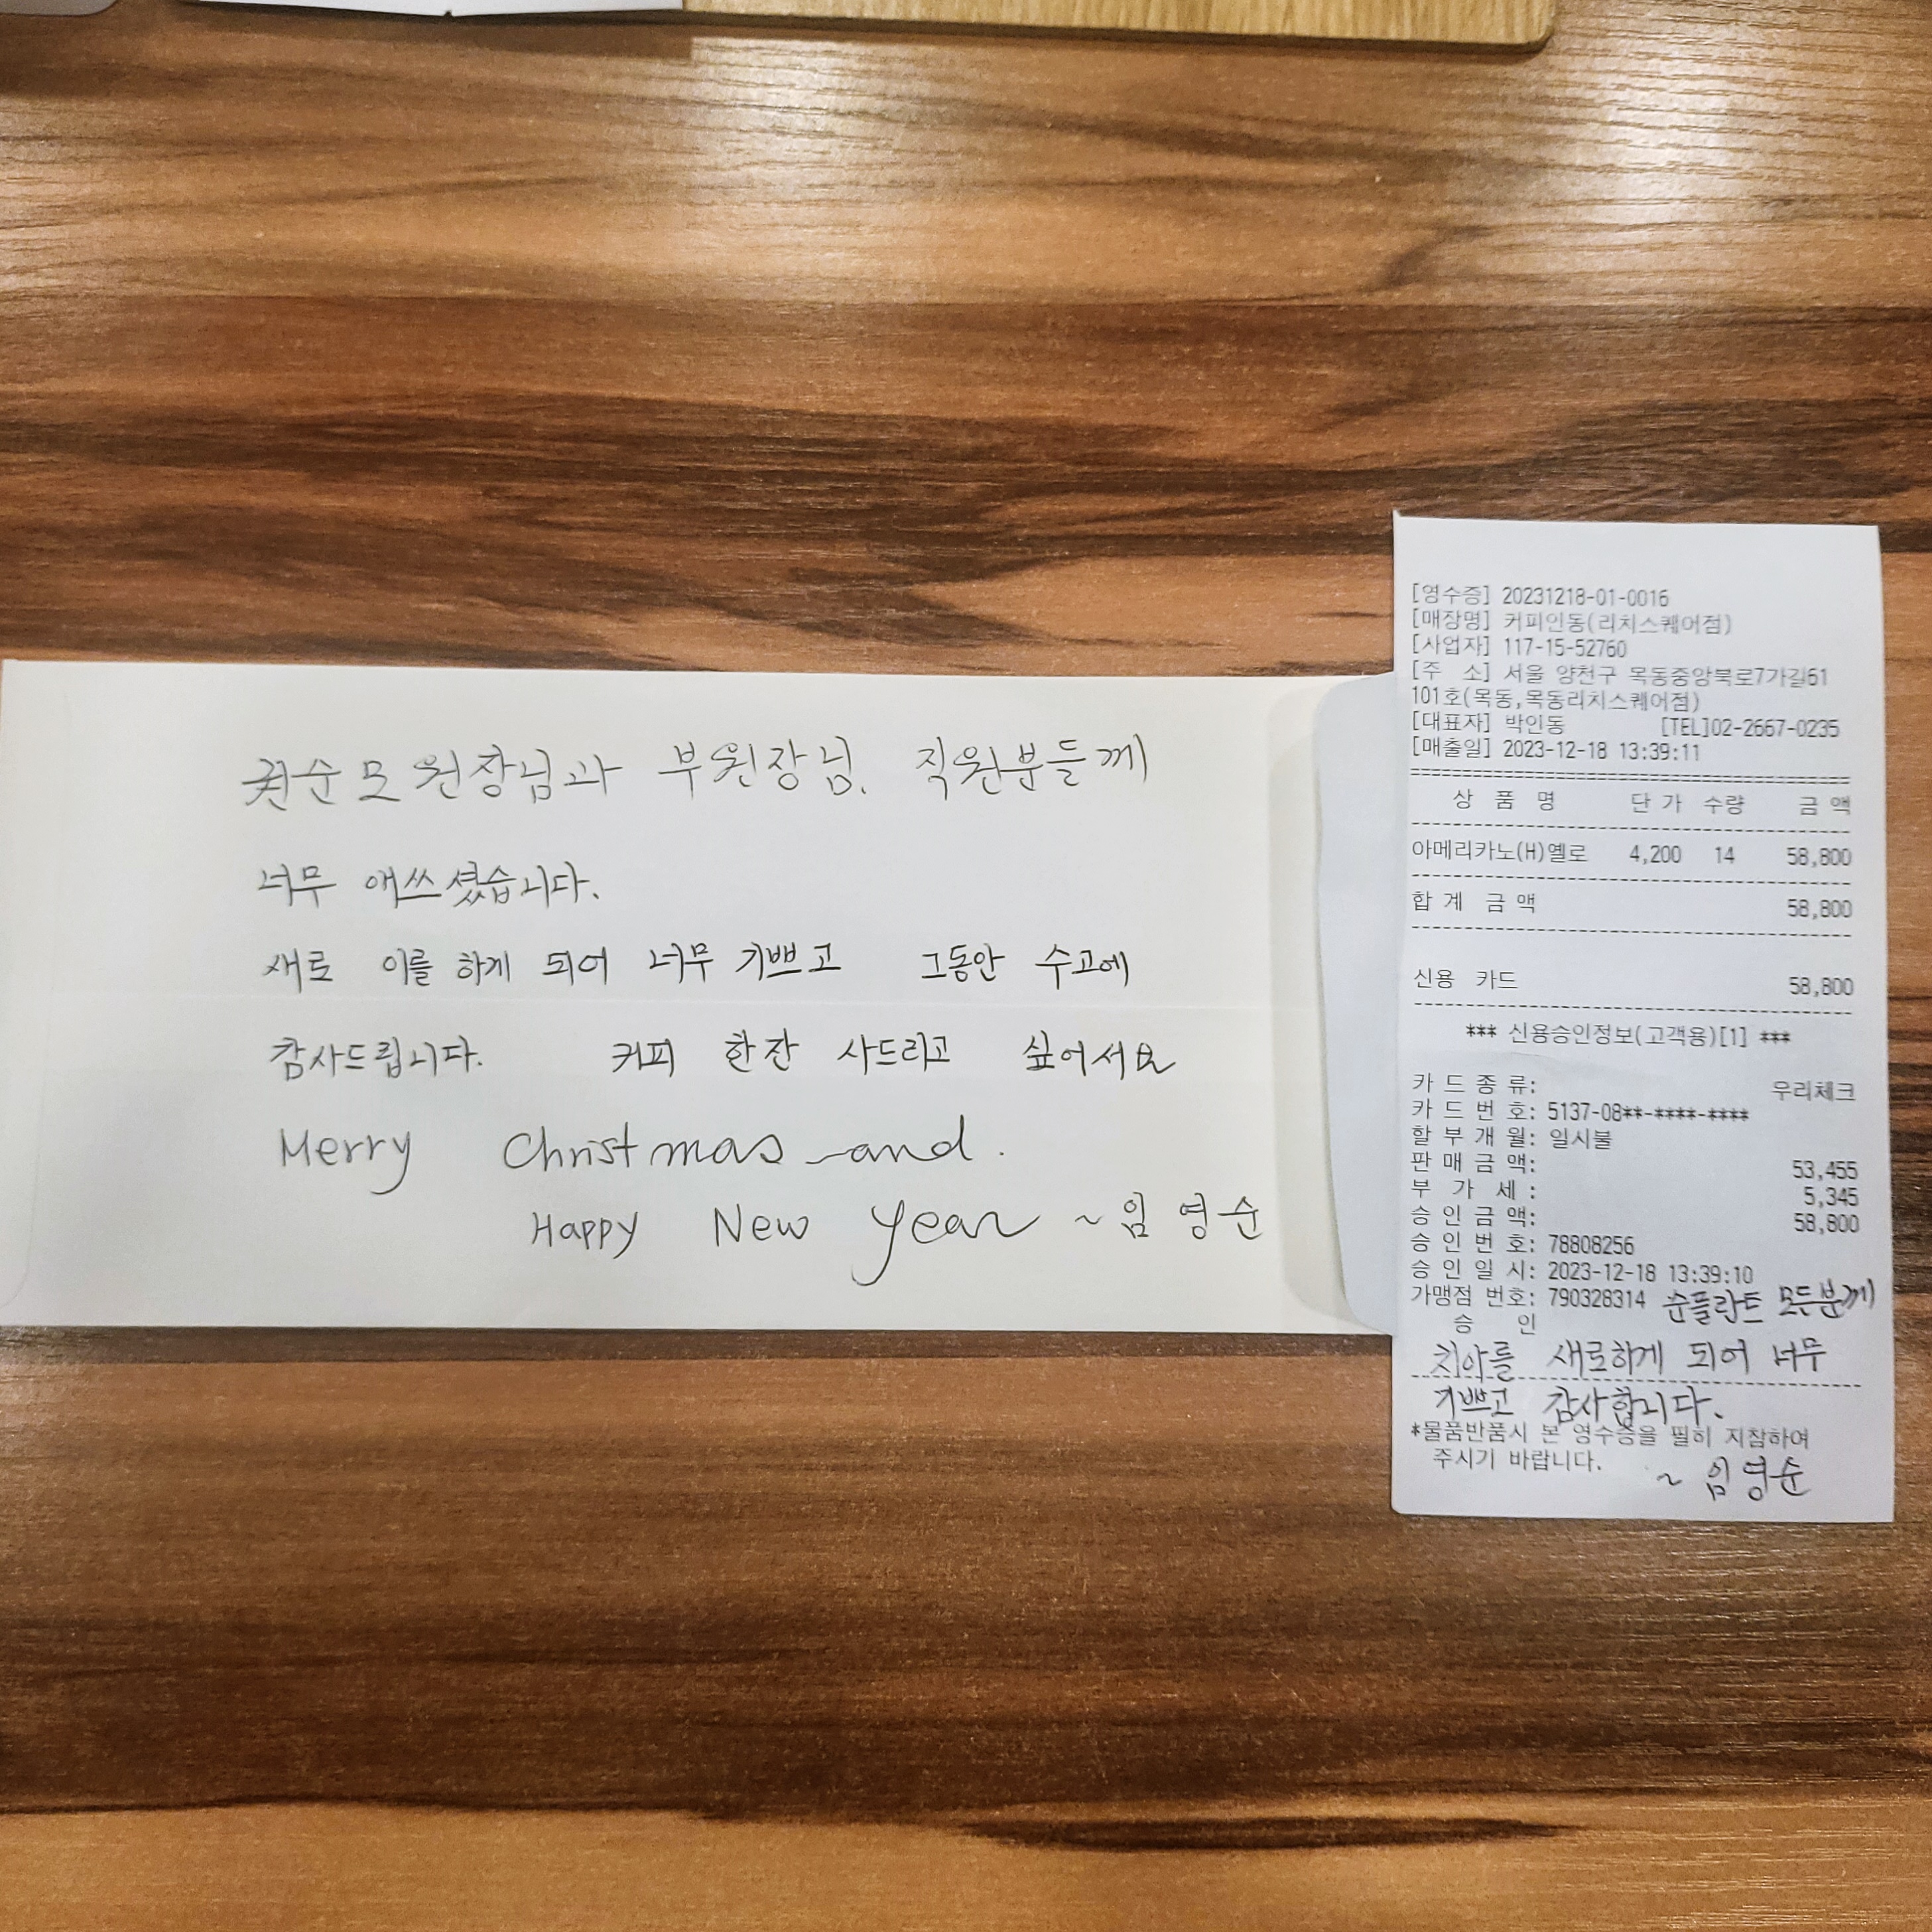 권순모원장님과 부원장님. 직원분들께
너무 애쓰셨습니다.
새로 이를 하게 되어 너무 기쁘고 그동안 수고에
감사드립니다. 커피 한잔 사드리고 싶어서요
Merry Christmas and.
Happy New Year ~ 임영순
[영수증] 20231218-01-0016
[매장명] 커피인동(리치스퀘어점)
[사업자] 117-15-52760
[주 소] 서울 양천구 목동중앙북로7가길61
101호(목동,목동리치스퀘어점)
[대표자] 박인동 [TEL]02-2667-0235
[매출일] 2023-12-18 13:39:11
상 품 명 단 가 수량 금 액
아메리카노(H)옐로 4,200 14 58,800
합 계 금 액 58,800
신용 카드 58,800
*** 신용승인정보(고객용)[1] ***
카 드 종 류: 우리체크
카 드 번 호: 5137-08**-****-****
할 부 개 월: 일시불
판 매 금 액: 53,455
부 가 세 : 5,345
승 인 금 액: 58,800
승 인 번 호: 78808256
승 인 일 시: 2023-12-18 13:39:10
가맹점 번호: 790328314 순플란트 모든분께
승 인
치아를 새로하게 되어 너무
기쁘고 감사합니다.
*물품반품시 본 영수증을 필히 지참하여
주시기 바랍니다.
~ 임영순